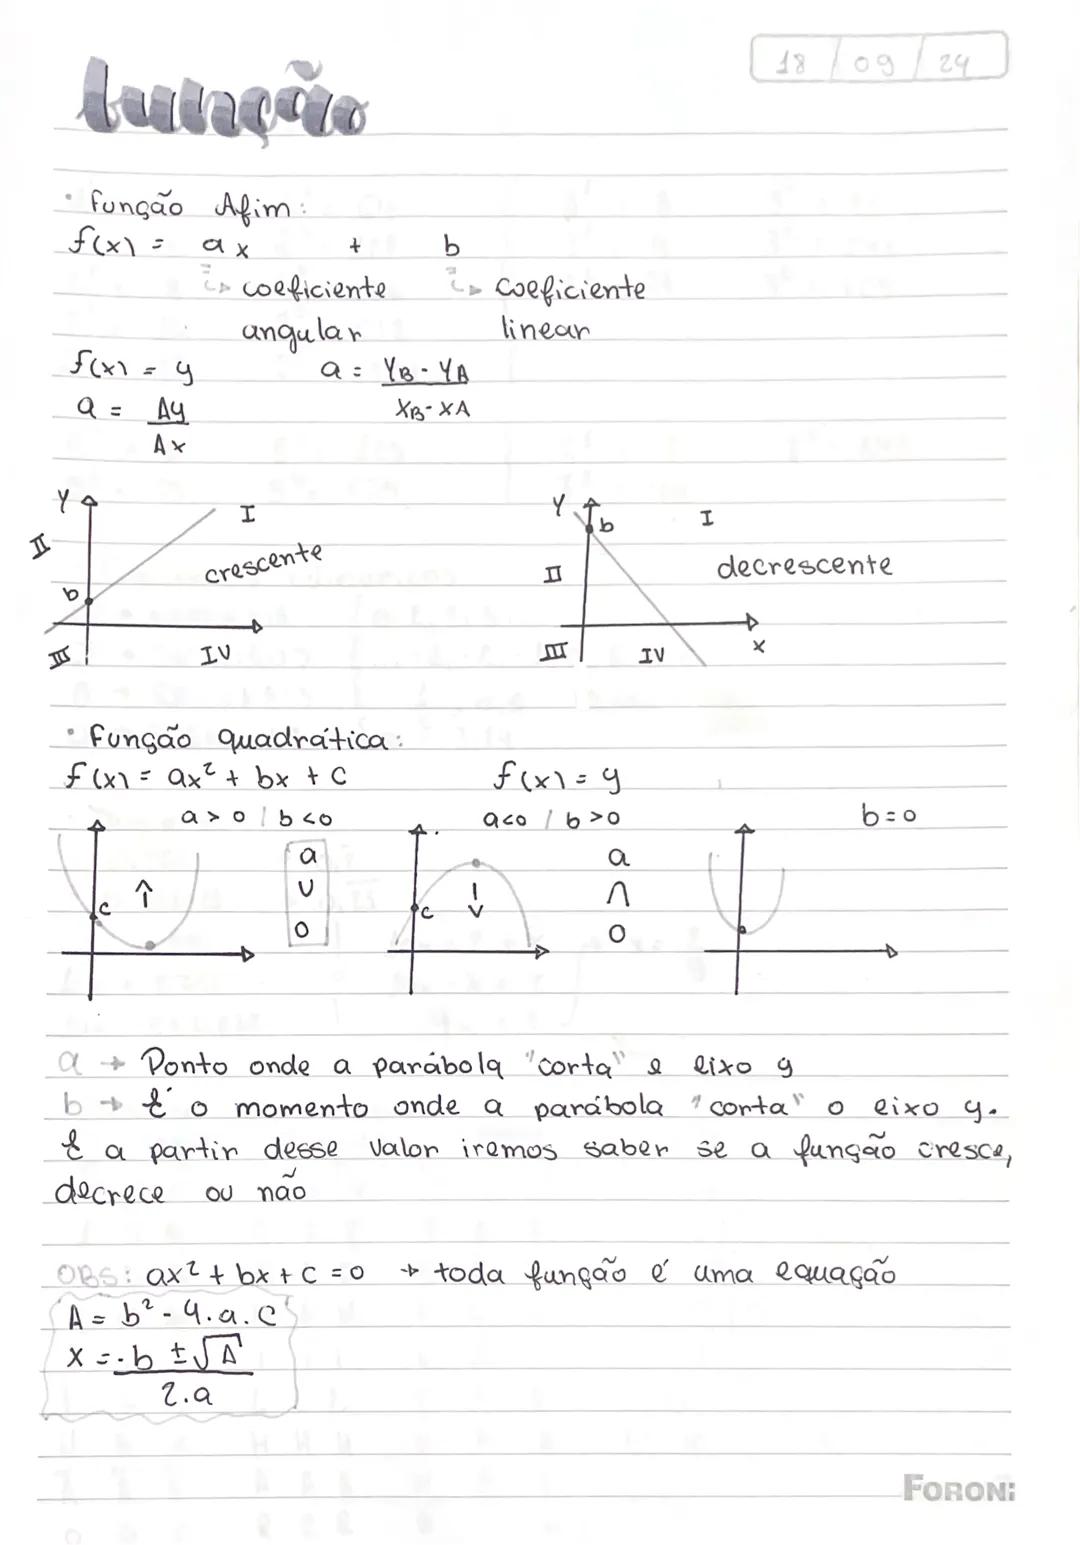 18 / 09 / 24
Função
• função Afim:
f(x) = ax + b
↳ coeficiente ↳ coeficiente
angular linear
f(x) = y a = YB - YA
a = Δy XB - XA
Δx
Y I Y b I
II crescente II decrescente
b
III IV III IV x
• função quadrática:
f(x) = ax² + bx + c f(x) = y
a > 0 / b < 0 a<0 / b >0 b = 0
a a
c ↑ ∪ c ↓ ∩
0 0
a → Ponto onde a parábola "corta" e eixo y
b → É o momento onde a parábola "corta" o eixo y.
É a partir desse valor iremos saber se a função cresce,
decrece ou não
OBS: ax² + bx + c = 0 → toda função é uma equação
Δ = b² - 4.a.c
x = -b ± √Δ
2.a
FORONI